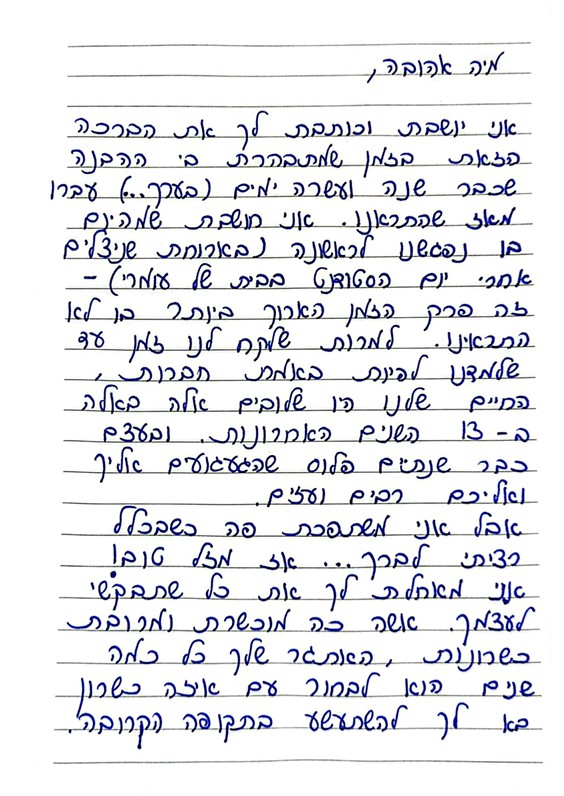 מיה אהובה,
אני יושבת וכותבת לך את הברכה
הזאת בזמן שמתבהרת בי ההבנה
שכבר שנה ועשרה ימים (בערך...) עברו
מאז שהתראנו. אני חושבת שמהיום
בו נפגשנו לראשונה (בארוחת שניצלים
אחרי יום הסטודנט בבית של עומרי) -
זה פרק הזמן הארוך ביותר בו לא
התראינו. למרות שלקח לנו זמן עד
שלמדנו להיות באמת חברות,
החיים שלנו היו שלובים אלה באלה
ב- 13 השנים האחרונות. ובעצם
כבר שנתיים פלוס שהגעגועים אליך
ואליכם רבים ועזים.
אבל אני משתפכת פה כשבכלל
רציתי לברך... אז מזל טוב!
אני מאחלת לך את כל שתבקשי
לעצמך. אשה כה מוכשרת ומרובת
כשרונות, האתגר שלך כל כמה
שנים הוא לבחור עם איזה כשרון
בא לך להשתעשע בתקופה הקרובה.